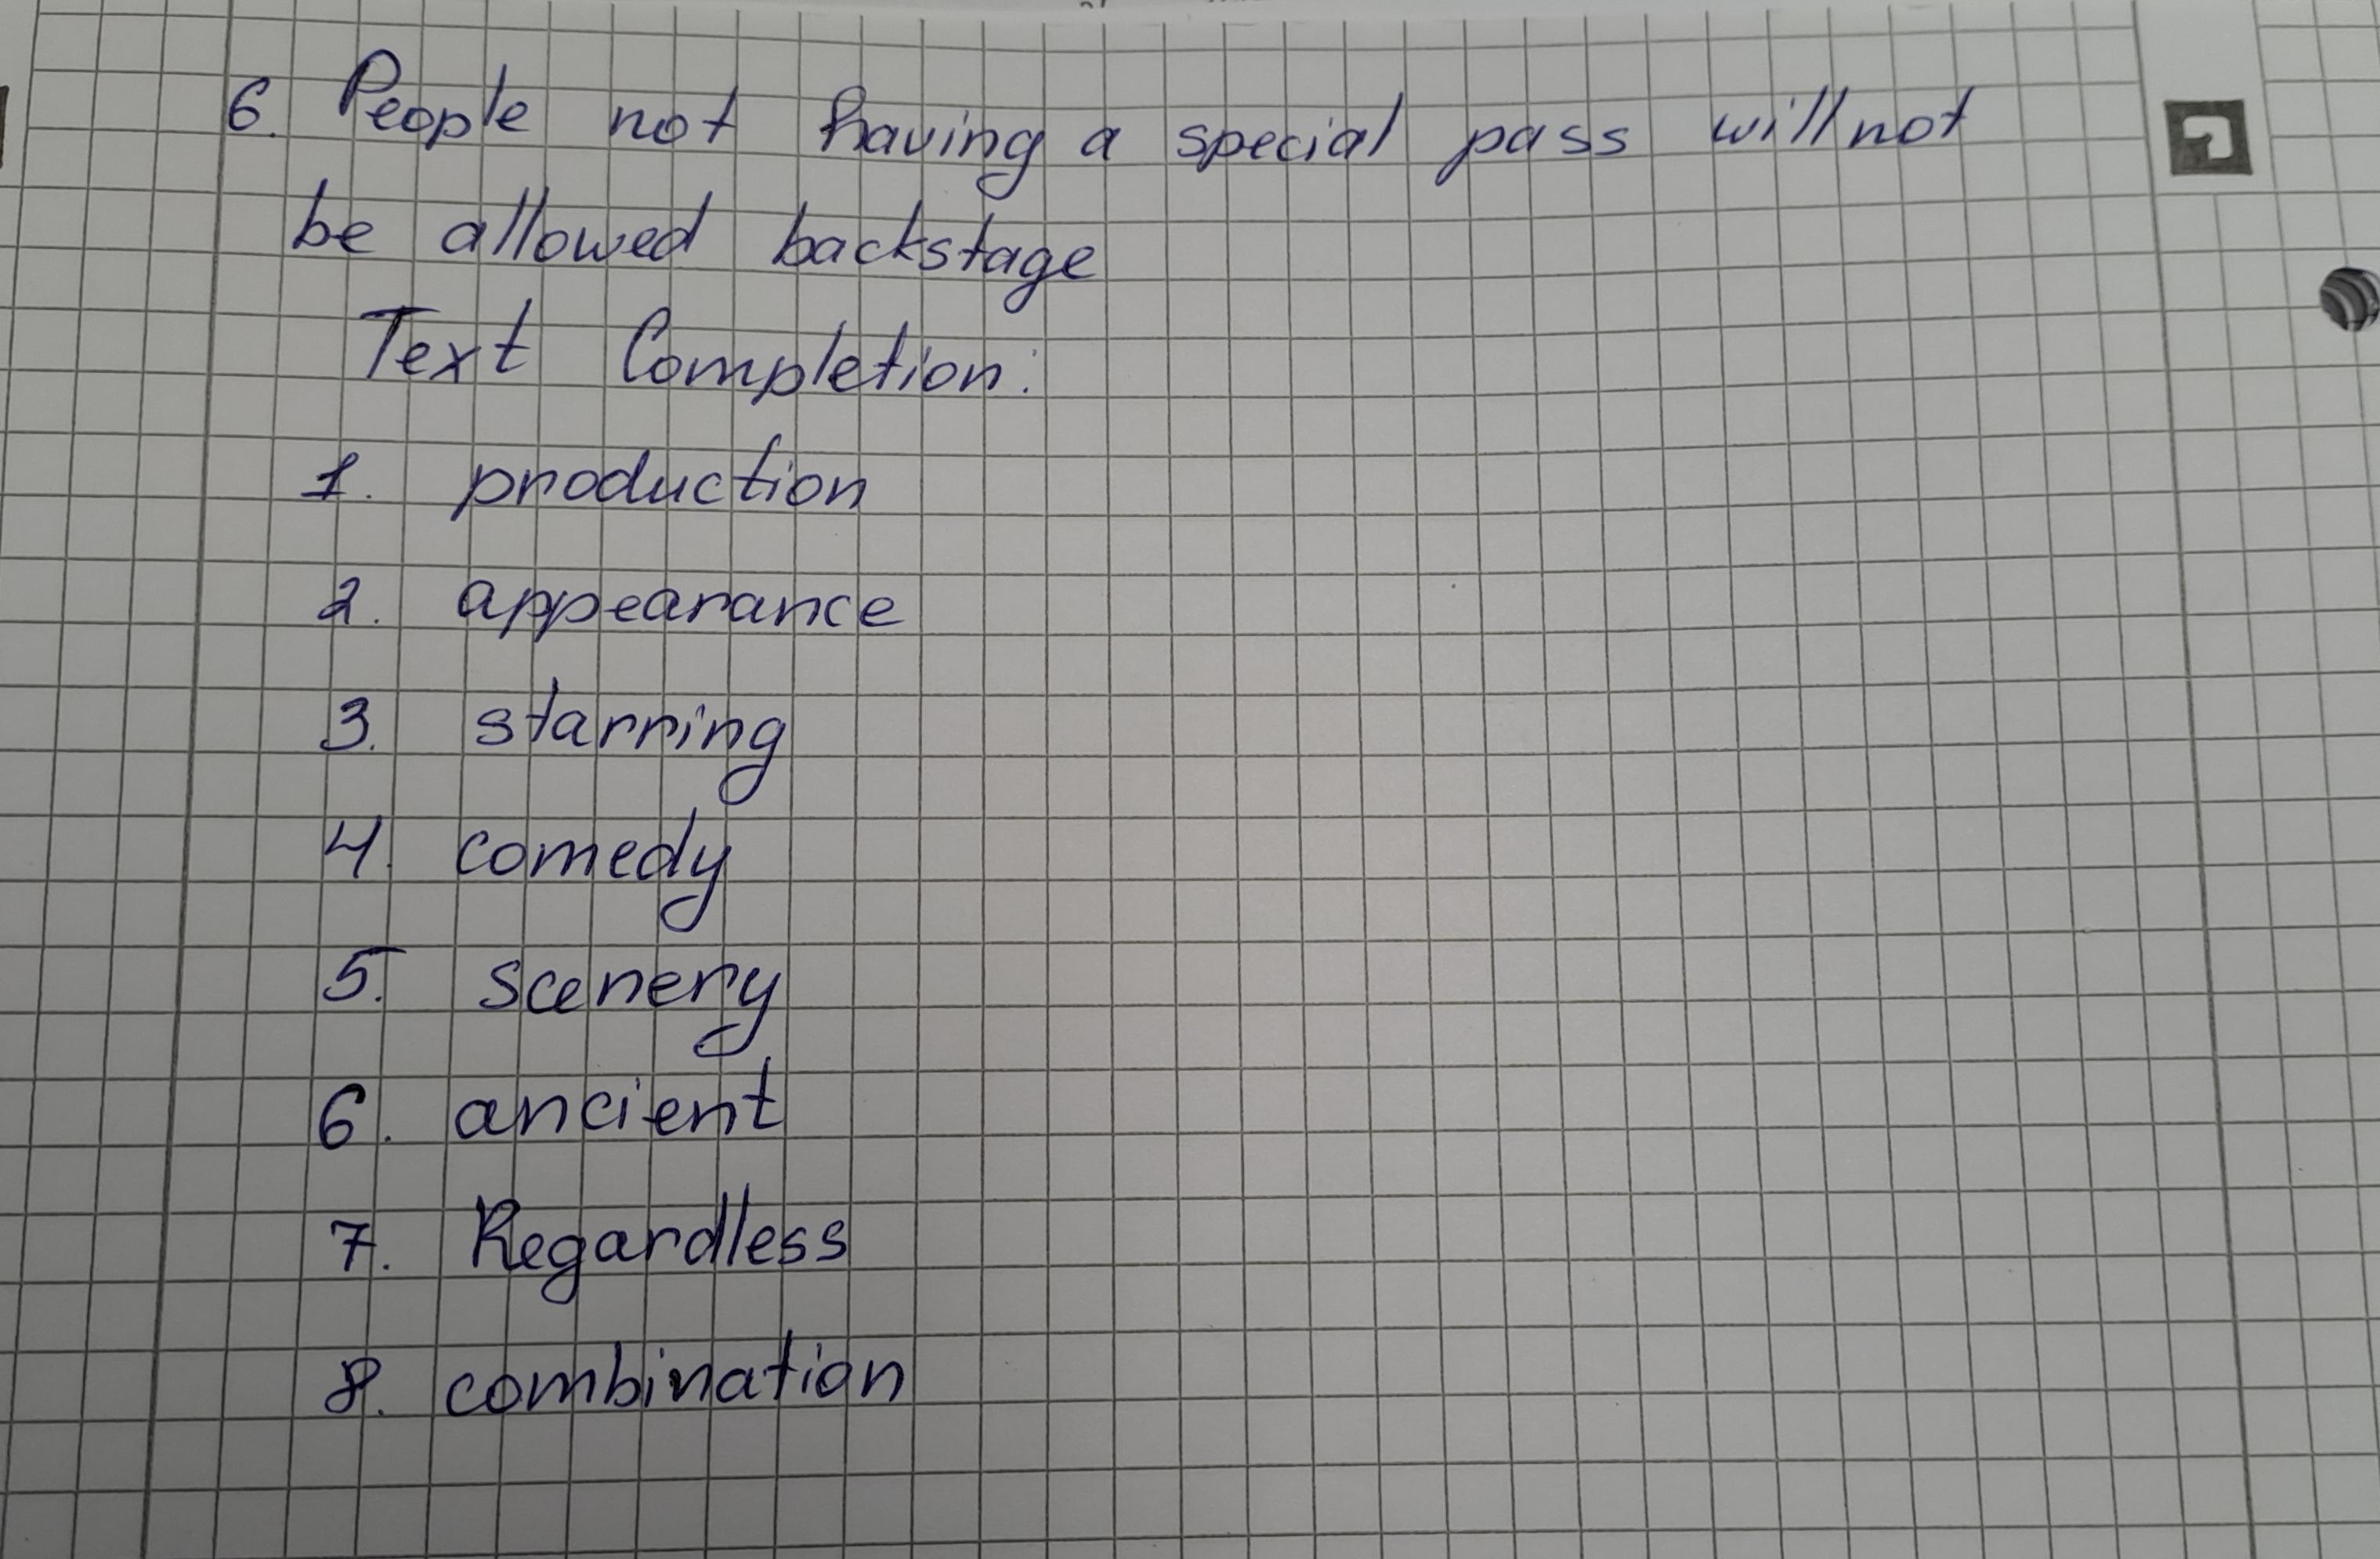 6. People not having a special pass will not
be allowed backstage
Text Completion:
1. production
2. appearance
3. starring
4. comedy
5. scenery
6. ancient
7. Regardless
8. combination